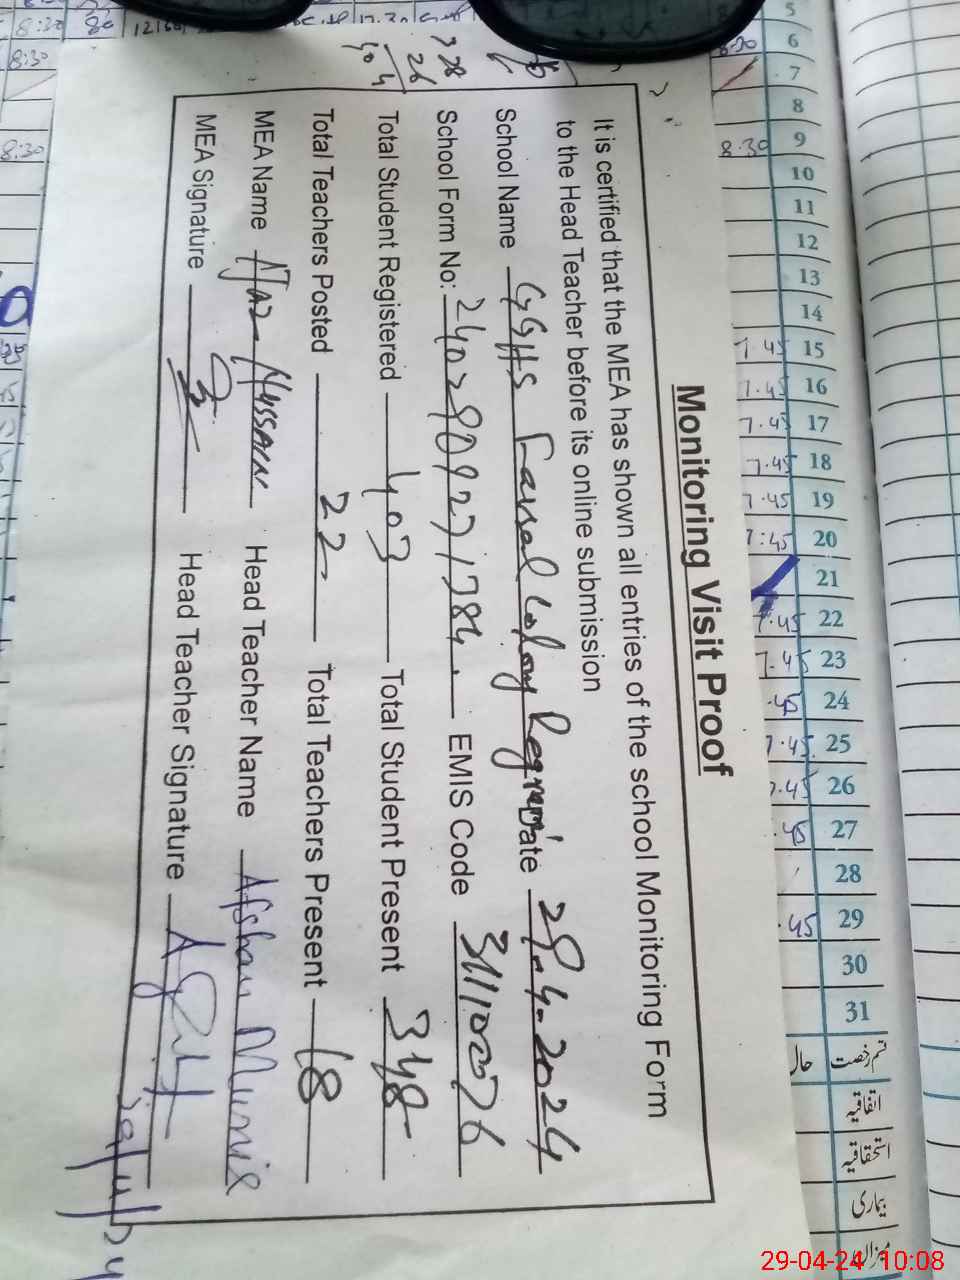 Monitoring Visit Proof
It is certified that the MEA has shown all entries of the school Monitoring Form
to the Head Teacher before its online submission
School Name GGHS Faisal Colony Date 29.4.2024
School Form No: 2402909271784. EMIS Code 31110076
Total Student Registered 403 Total Student Present 348
Total Teachers Posted 22 Total Teachers Present 18
MEA Name Hussain Head Teacher Name Afshan Munir
MEA Signature Head Teacher Signature
5
6 8:30
7
8
9 8:30
10
11
12
13
14
15 7.45
16 7.45
17 7.45
18 7.45
19 7.45
20 7:45
21
22 7.45
23 7.45
24 .45
25 7.45
26 7.45
27 45
28
29 .45
30
31
قسم رخصت حال
اتفاقیہ
استحقاقیہ
بیماری
میزان
8:30
8:30
8:30
29-04-24 10:08